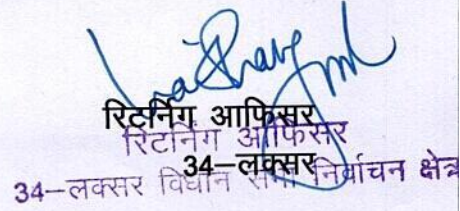 रिटर्निंग आफिसर
रिटर्निंग आफिसर
34–लक्सर
34–लक्सर विधान सभा निर्वाचन क्षेत्र